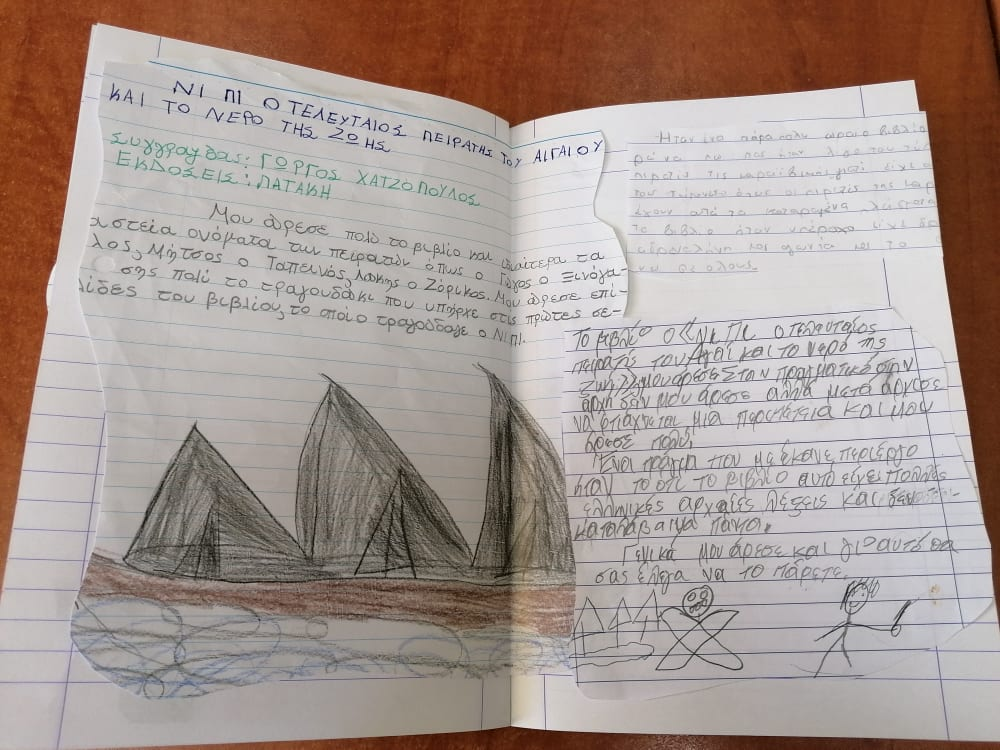 ΝΙ ΠΙ Ο ΤΕΛΕΥΤΑΙΟΣ ΠΕΙΡΑΤΗΣ ΤΟΥ ΑΙΓΑΙΟΥ
ΚΑΙ ΤΟ ΝΕΡΟ ΤΗΣ ΖΩΗΣ
Συγγραφας: ΓΩΡΓΟΣ ΧΑΤΖΟΠΟΥΛΟΣ
ΕΚΔΟΣΕΙΣ: ΠΑΤΑΚΗ
Μου άρεσε πολύ το βιβλίο και ιδιαίτερα τα
αστεία ονόματα των πειρατών όπως ο Γώγος ο Ξινόγα-
λος, Μήτσος ο Ταπεινός, Λάκης ο Ζόρικος. Μου άρεσε επί-
σης πολύ το τραγουδάκι που υπήρχε στις πρώτες σε-
λίδες του βιβλίου, το οποίο τραγουδαγε ο ΝΙ ΠΙ.
Ήταν ένα πάρα πολύ ωραίο βιβλίο
να πω πως ήταν λίγο σαν τους
πειρατές της καραϊβικής γιατί είχε
όπως οι πειρατές της καρ
έχουν από το καταραμένο
το βιβλίο ήταν υπέροχο είχε δρ
αδρεναλίνη και αγωνία και το
σε όλους.
Το βιβλίο ο «Νι Πι ο τελευταίος
πειρατής του Αιγαί και το νερό της
ζωής» μου άρεσε Στην πραγματικό στην
αρχή δεν μου άρεσε αλλά μετά άρχισε
να φτιάχνεται μια περιπέτεια και μου
άρεσε πολύ.
Ένα πράγμα που με έκανε περίεργο
ήταν το ότι το βιβλίο αυτό είχει πολλές
ελληνικές αρχαίες λέξεις και δεν
καταλάβαινα πάντα.
Γενικά μου άρεσε και γι'αυτό θα
σας έλεγα να το πάρετε.